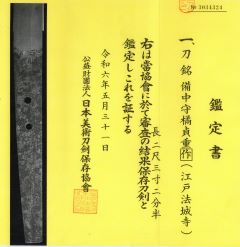 № 3034324
鑑定書
一、刀 銘 備中守橘貞重 作(江戸法城寺)
長 二尺三寸二分半
右は當協會に於て審査の結果保存刀剣と
鑑定しこれを証する
令和六年五月三十一日
公益財團法人 日本美術刀剣保存協會